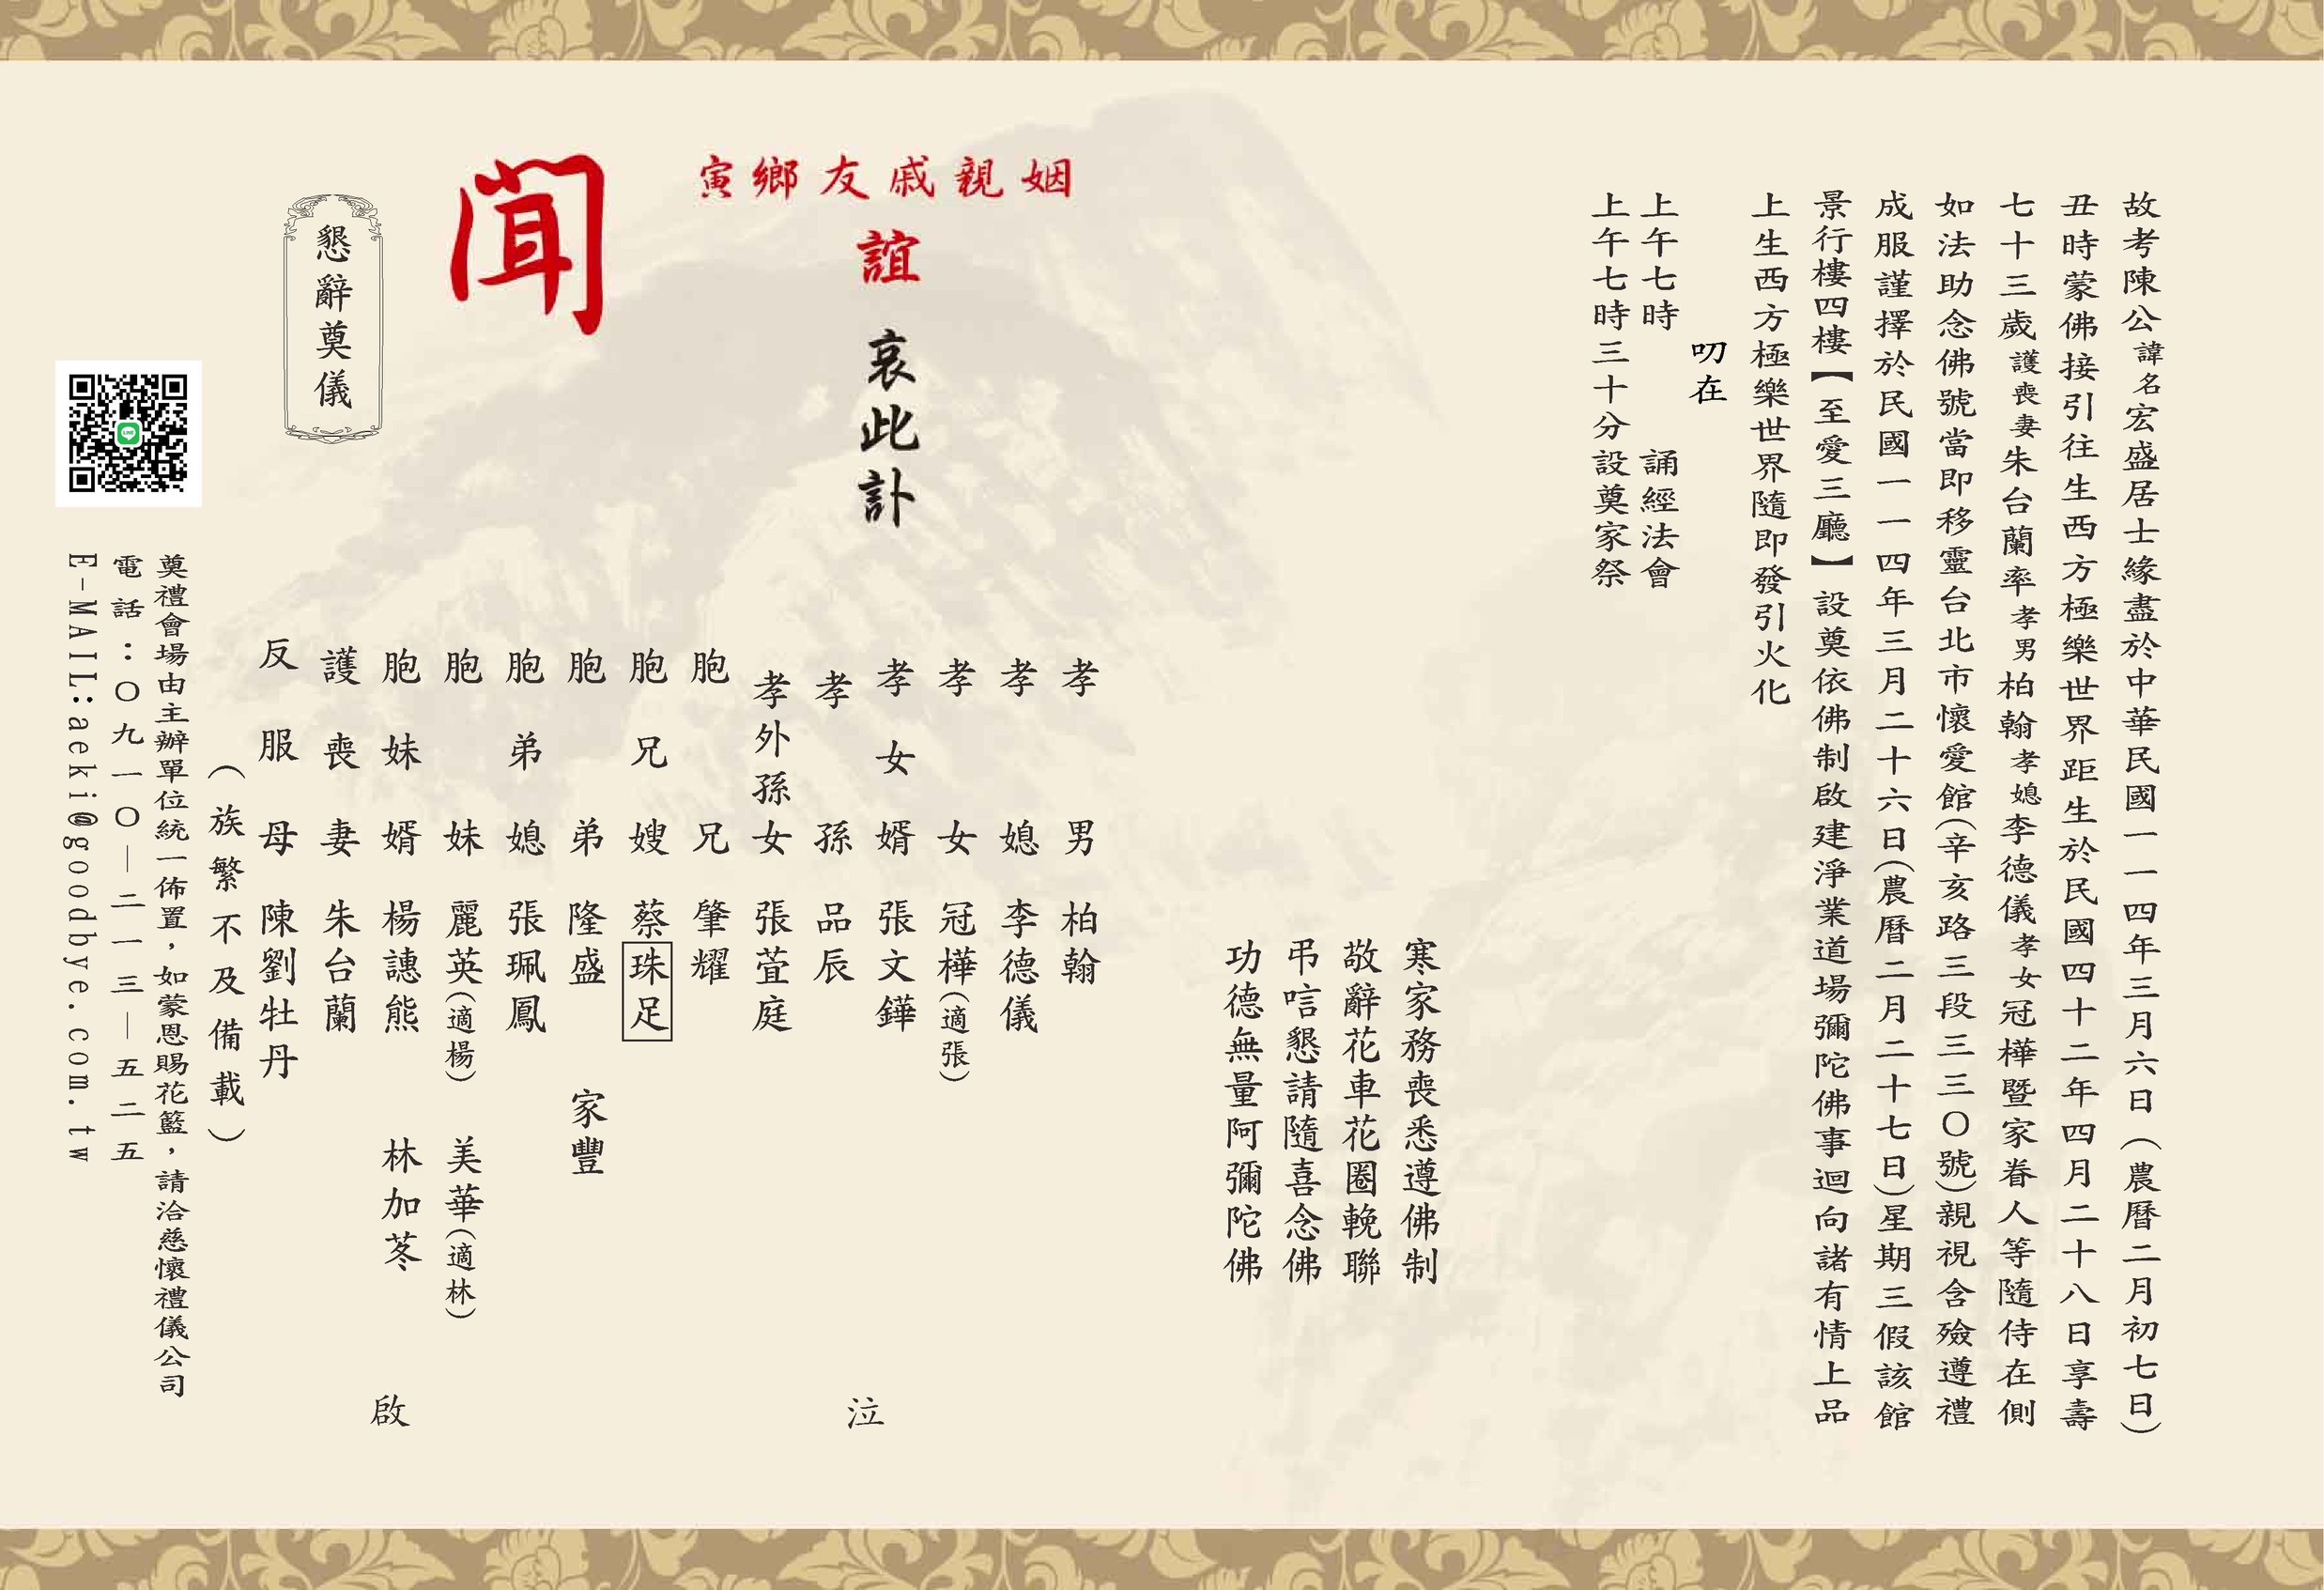 故考陳公諱名宏盛居士緣盡於中華民國一一四年三月六日（農曆二月初七日）
丑時蒙佛接引往生西方極樂世界距生於民國四十二年四月二十八日享壽
七十三歲護喪妻朱台蘭率孝男柏翰孝媳李德儀孝女冠樺暨家眷人等隨侍在側
如法助念佛號當即移靈台北市懷愛館(辛亥路三段三三〇號)親視含殮遵禮
成服謹擇於民國一一四年三月二十六日(農曆二月二十七日)星期三假該館
景行樓四樓【至愛三廳】設奠依佛制啟建淨業道場彌陀佛事迴向諸有情上品
上生西方極樂世界隨即發引火化
叨在
上午七時 誦經法會
上午七時三十分設奠家祭
寒家務喪悉遵佛制
敬辭花車花圈輓聯
弔唁懇請隨喜念佛
功德無量阿彌陀佛
姻親戚友鄉寅
誼 哀此訃
聞
孝男 柏翰
孝媳 李德儀
孝女 冠樺(適張)
孝女婿 張文鏵
孝孫 品辰
孝外孫女 張萓庭
胞兄 肇耀
胞兄嫂 蔡珠足
胞弟 隆盛 家豐
胞弟媳 張珮鳳
胞妹 麗英(適楊) 美華(適林)
胞妹婿 楊譓熊 林加苳
護喪妻 朱台蘭
反服母 陳劉牡丹
（族繁不及備載）
泣
啟
懇辭奠儀
奠禮會場由主辦單位統一佈置，如蒙恩賜花籃，請洽慈懷禮儀公司
電話：〇九一〇－二一三－五二五
E-MAIL:aeki@goodbye.com.tw